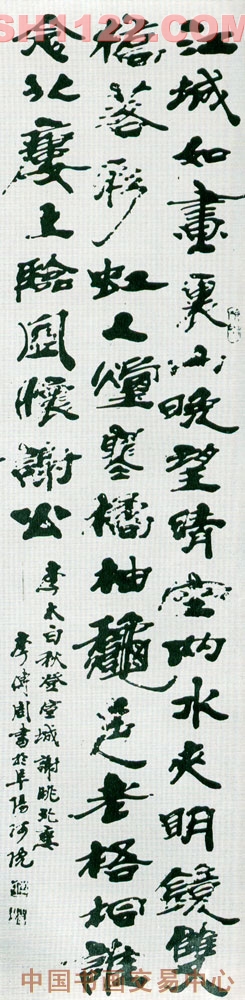 SH1122.COM
江城如畫裏山晚望晴空兩水夾明鏡雙
橋落彩虹人煙寒橘柚龝色老梧桐誰
念北樓上臨風懷謝公
李太白秋登宣城謝眺北樓
書於阜陽師院
中国书画交易中心